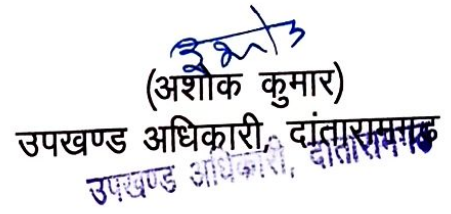 (अशोक कुमार)
उपखण्ड अधिकारी, दांतारामगढ
उपखण्ड अधिकारी, दांतारामगढ